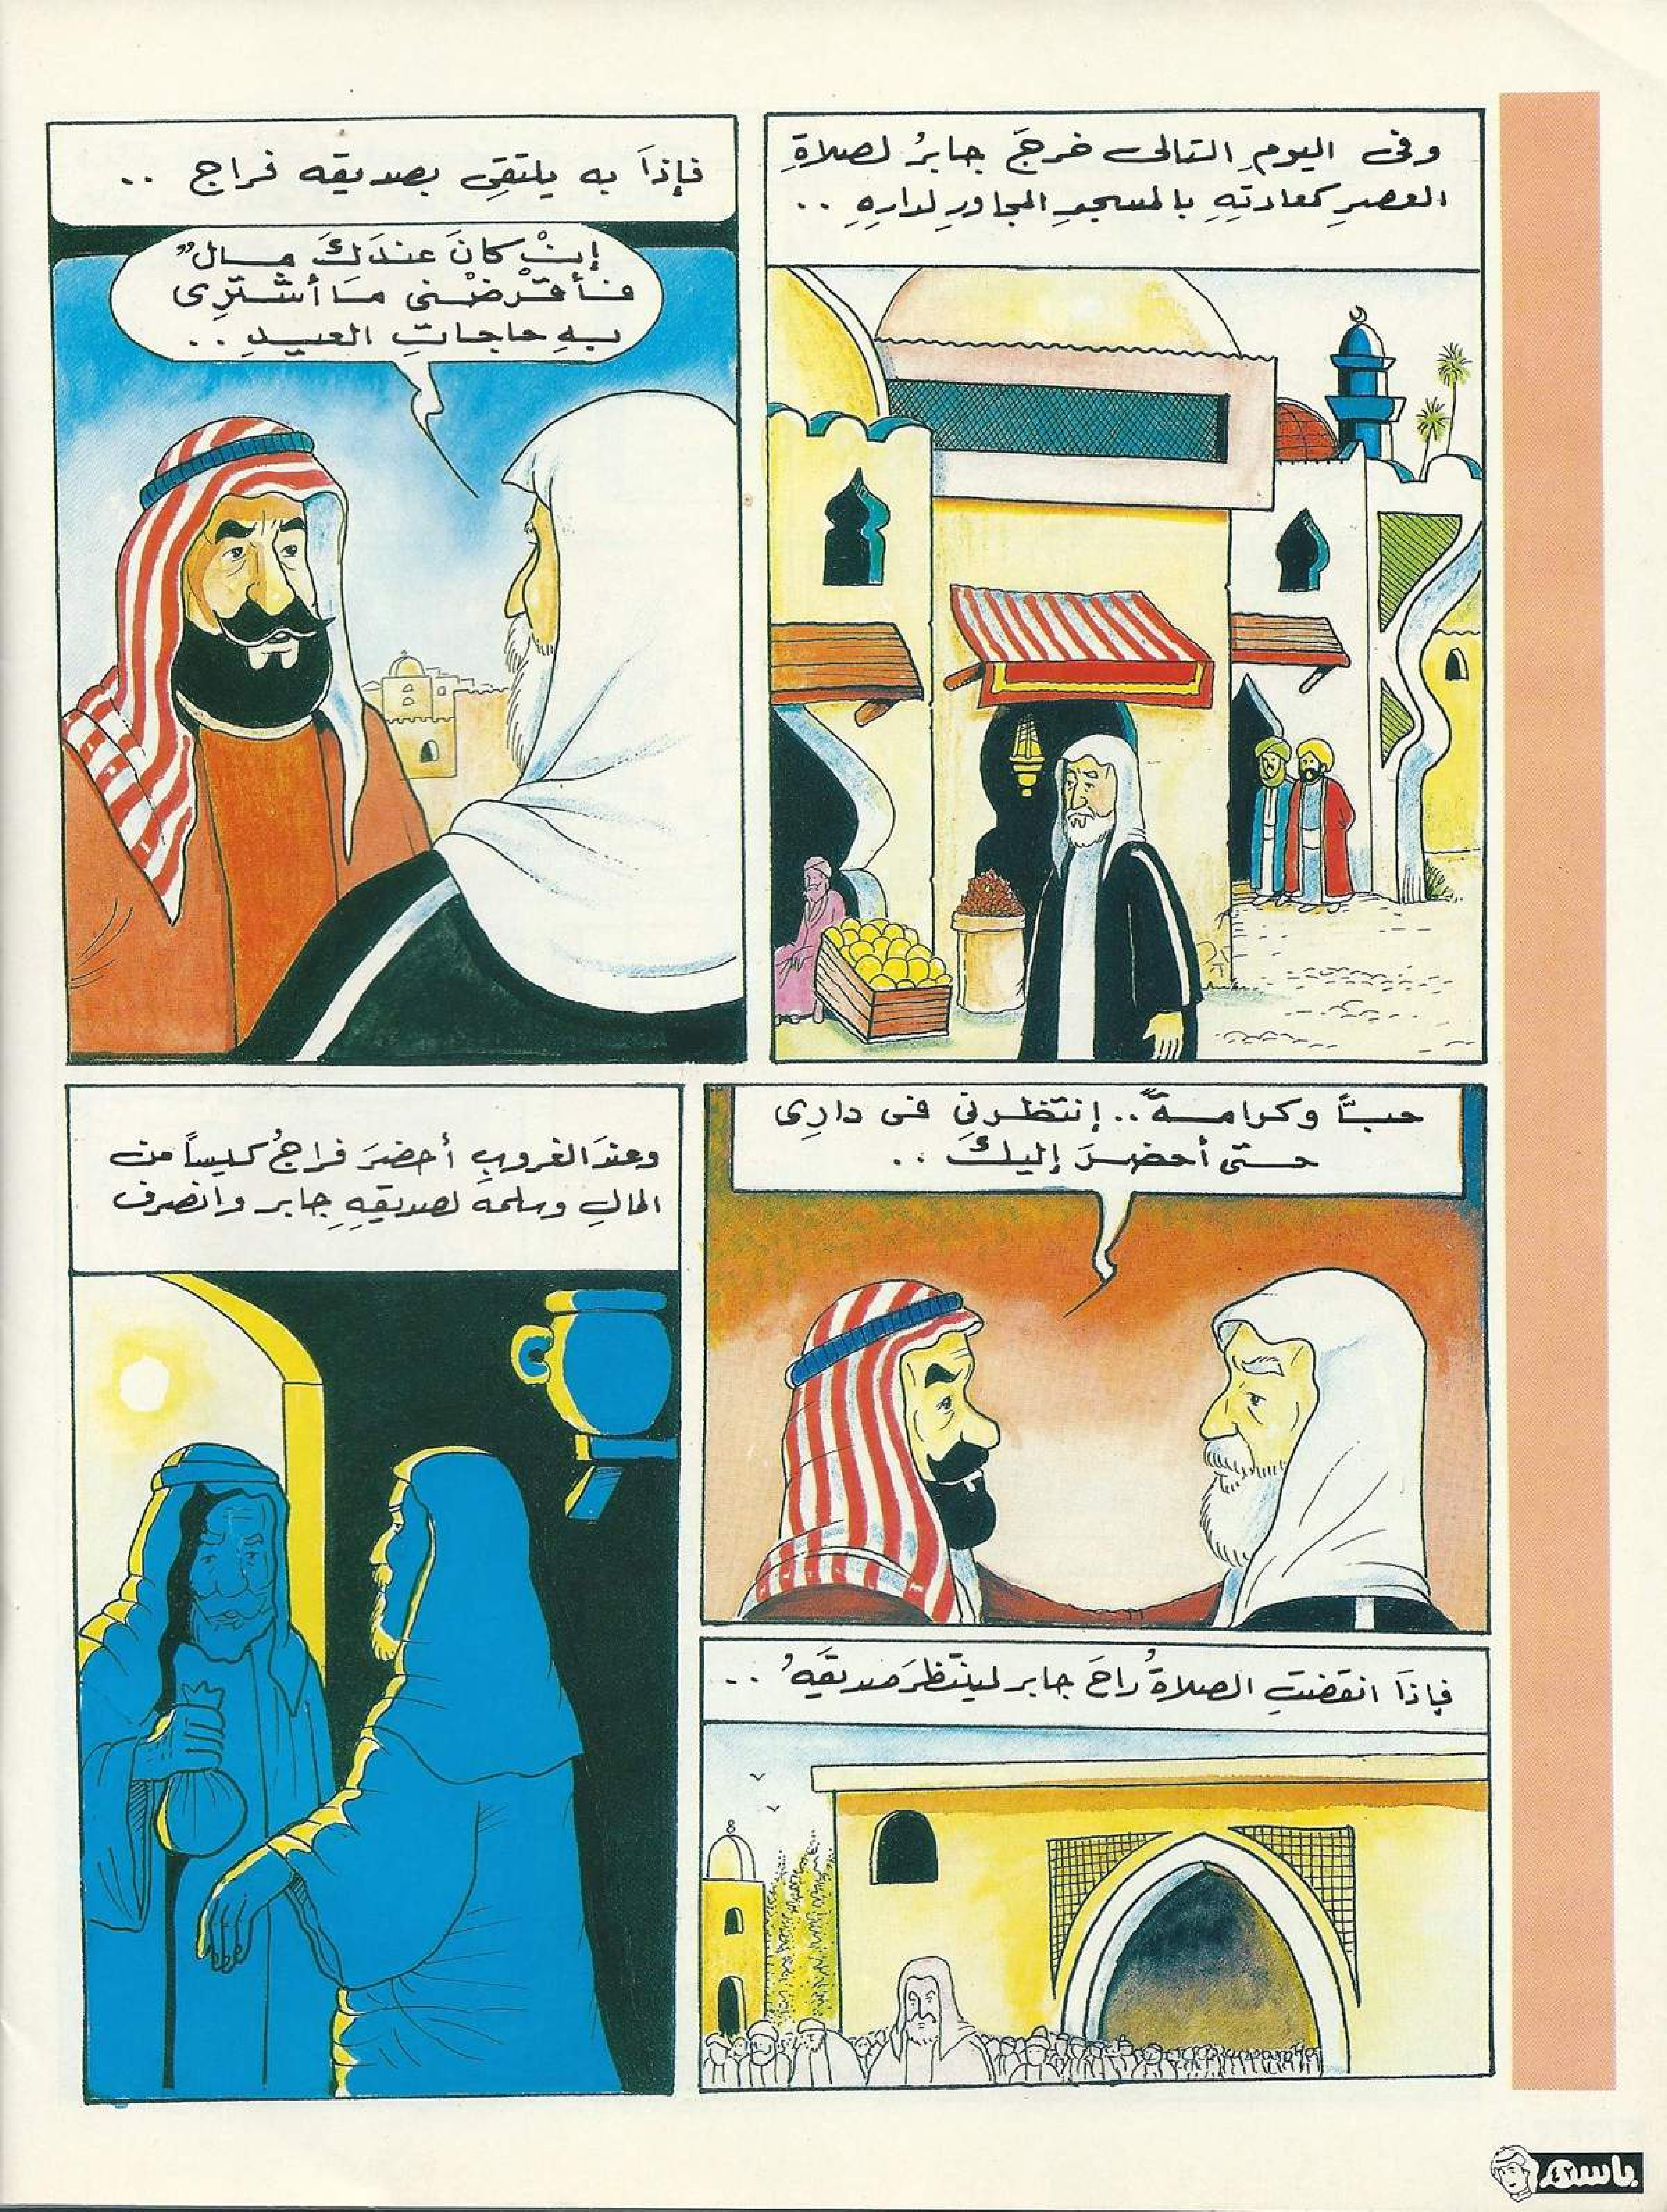 وفى اليومِ التالى خرجَ جابرُ لصلاةِ
العصرِ كعادتِهِ بالمسجدِ المجاورِ لدارِهِ ..
فإذاَ به يلتقِى بصديقه فراج ..
إنْ كانَ عندَكَ مالٌ
فأقْرضْنى مَا أشتَرِى
بهِ حاجاتِ العيدِ ..
حباًّ وكرامةً .. إنتظرنِى فى دارِى
حتى أحضرَ إليكَ ..
فإذاَ انقضتِ الصلاةُ راحَ جابر لينتظرَ صديقَهُ ..
وعندَ الغروبِ أحضرَ فراجُ كيساً من
المالِ وسلمه لصديقِهِ جابر وانصرف
باسم